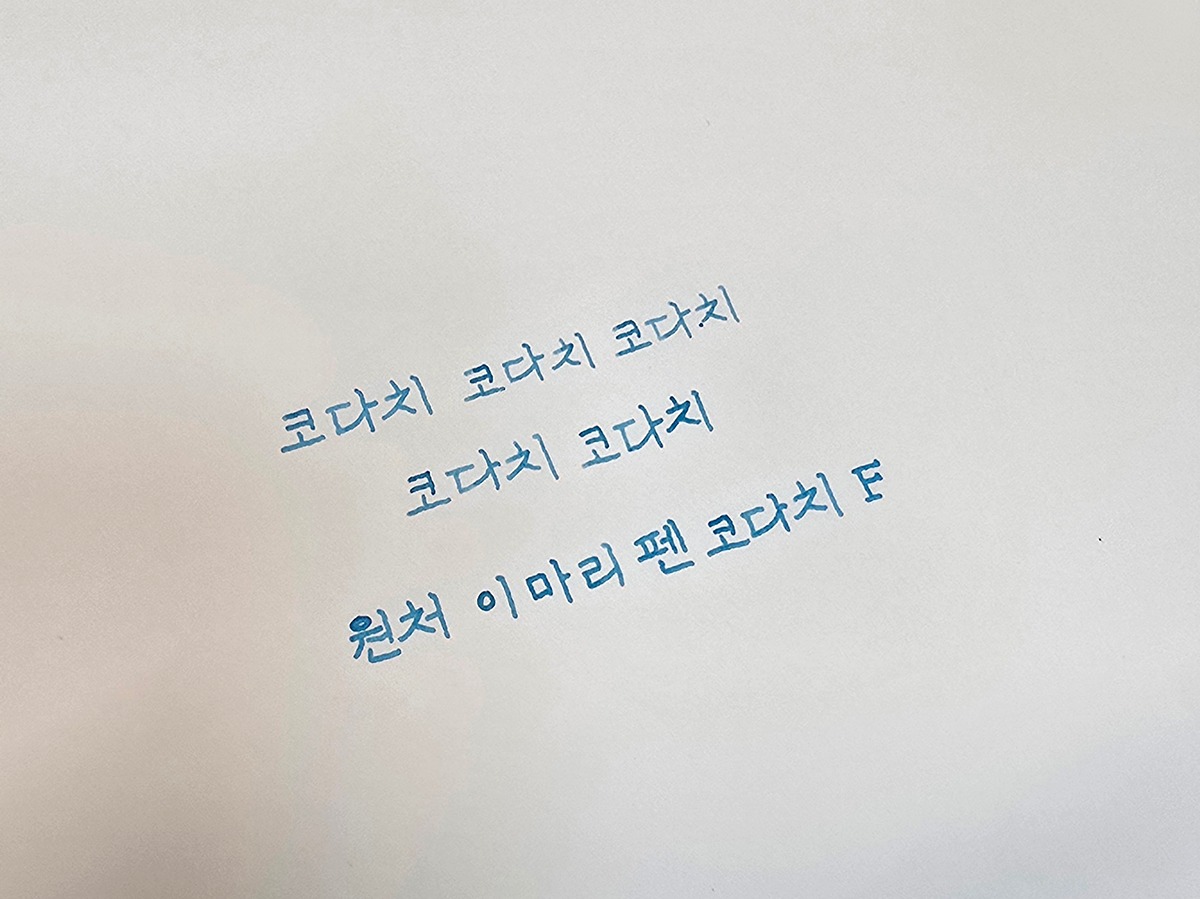 코다치 코다치 코다치
코다치 코다치
원처 이마리 펜 코다치 F